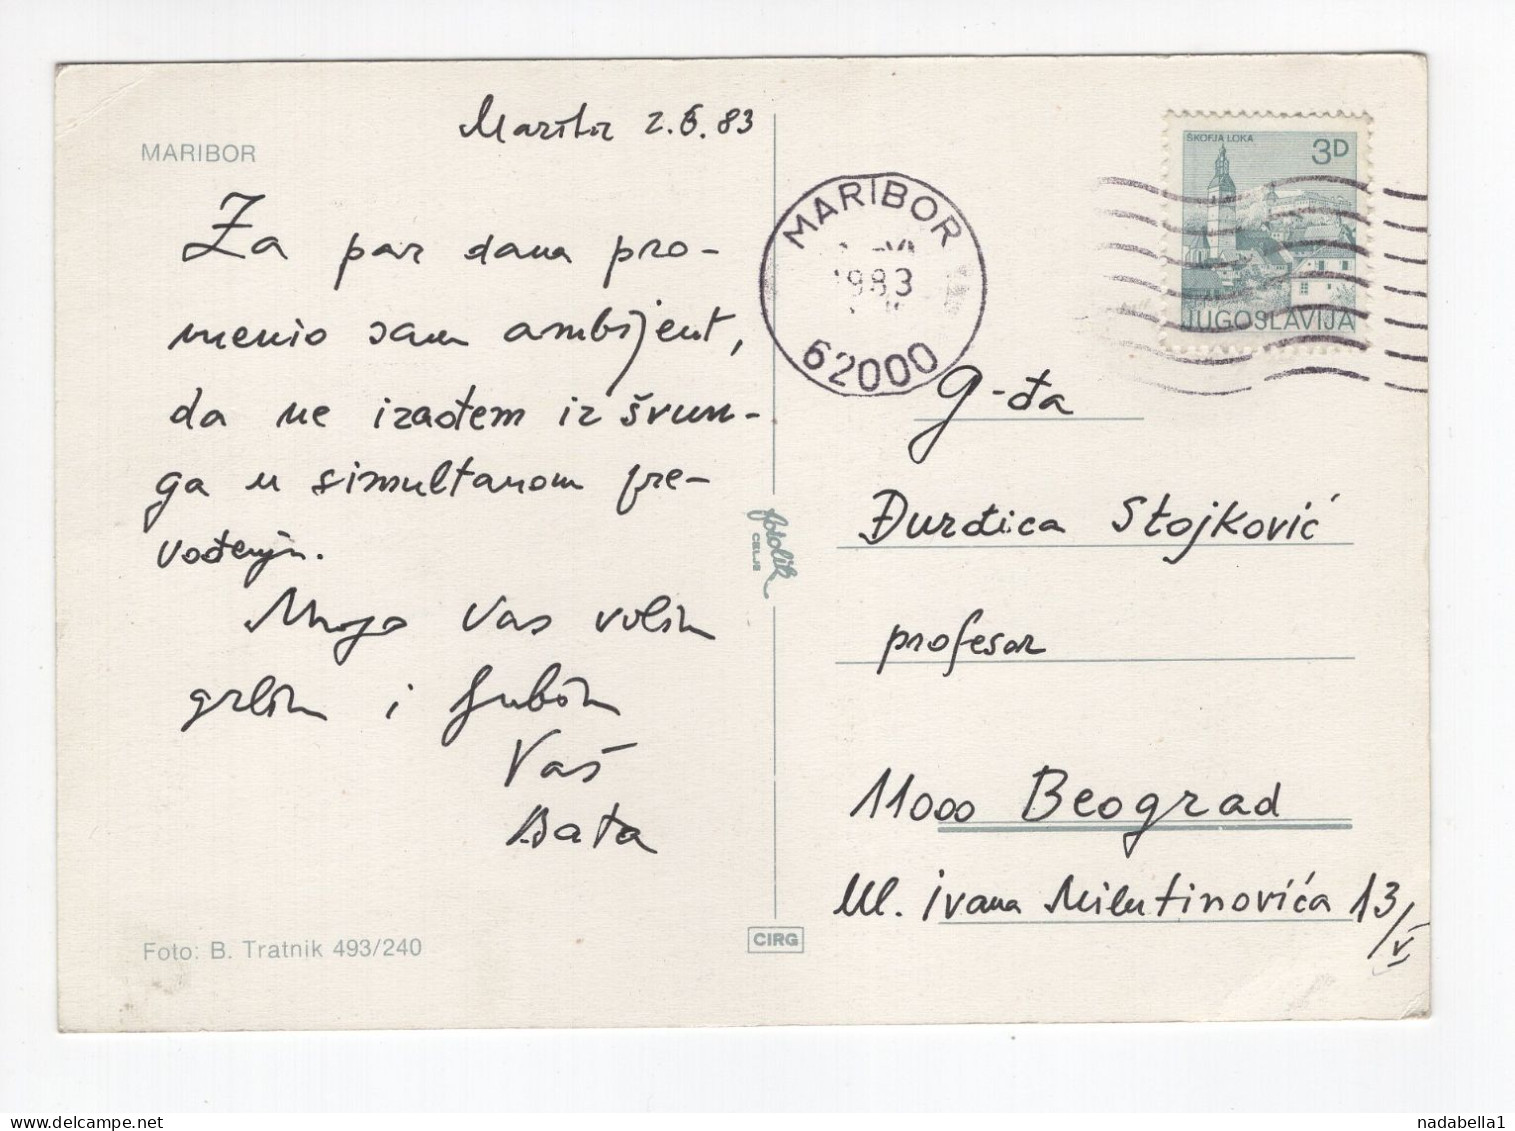 MARIBOR
Maribor 2.6.83
Za par dana pro-
menio sam ambijent,
da ne izađem iz švun-
ga u simultanom pre-
vođenju.
Mnogo Vas volim
grlim i ljubim
Vaš
Bata
Foto: B. Tratnik 493/240
fotolik
CELJE
CIRG
MARIBOR
1983
62000
ŠKOFJA LOKA
3D
JUGOSLAVIJA
g-đa
Đurđica Stojković
profesor
11000 Beograd
Ul. Ivana Milutinovića 13/V
nadabella1